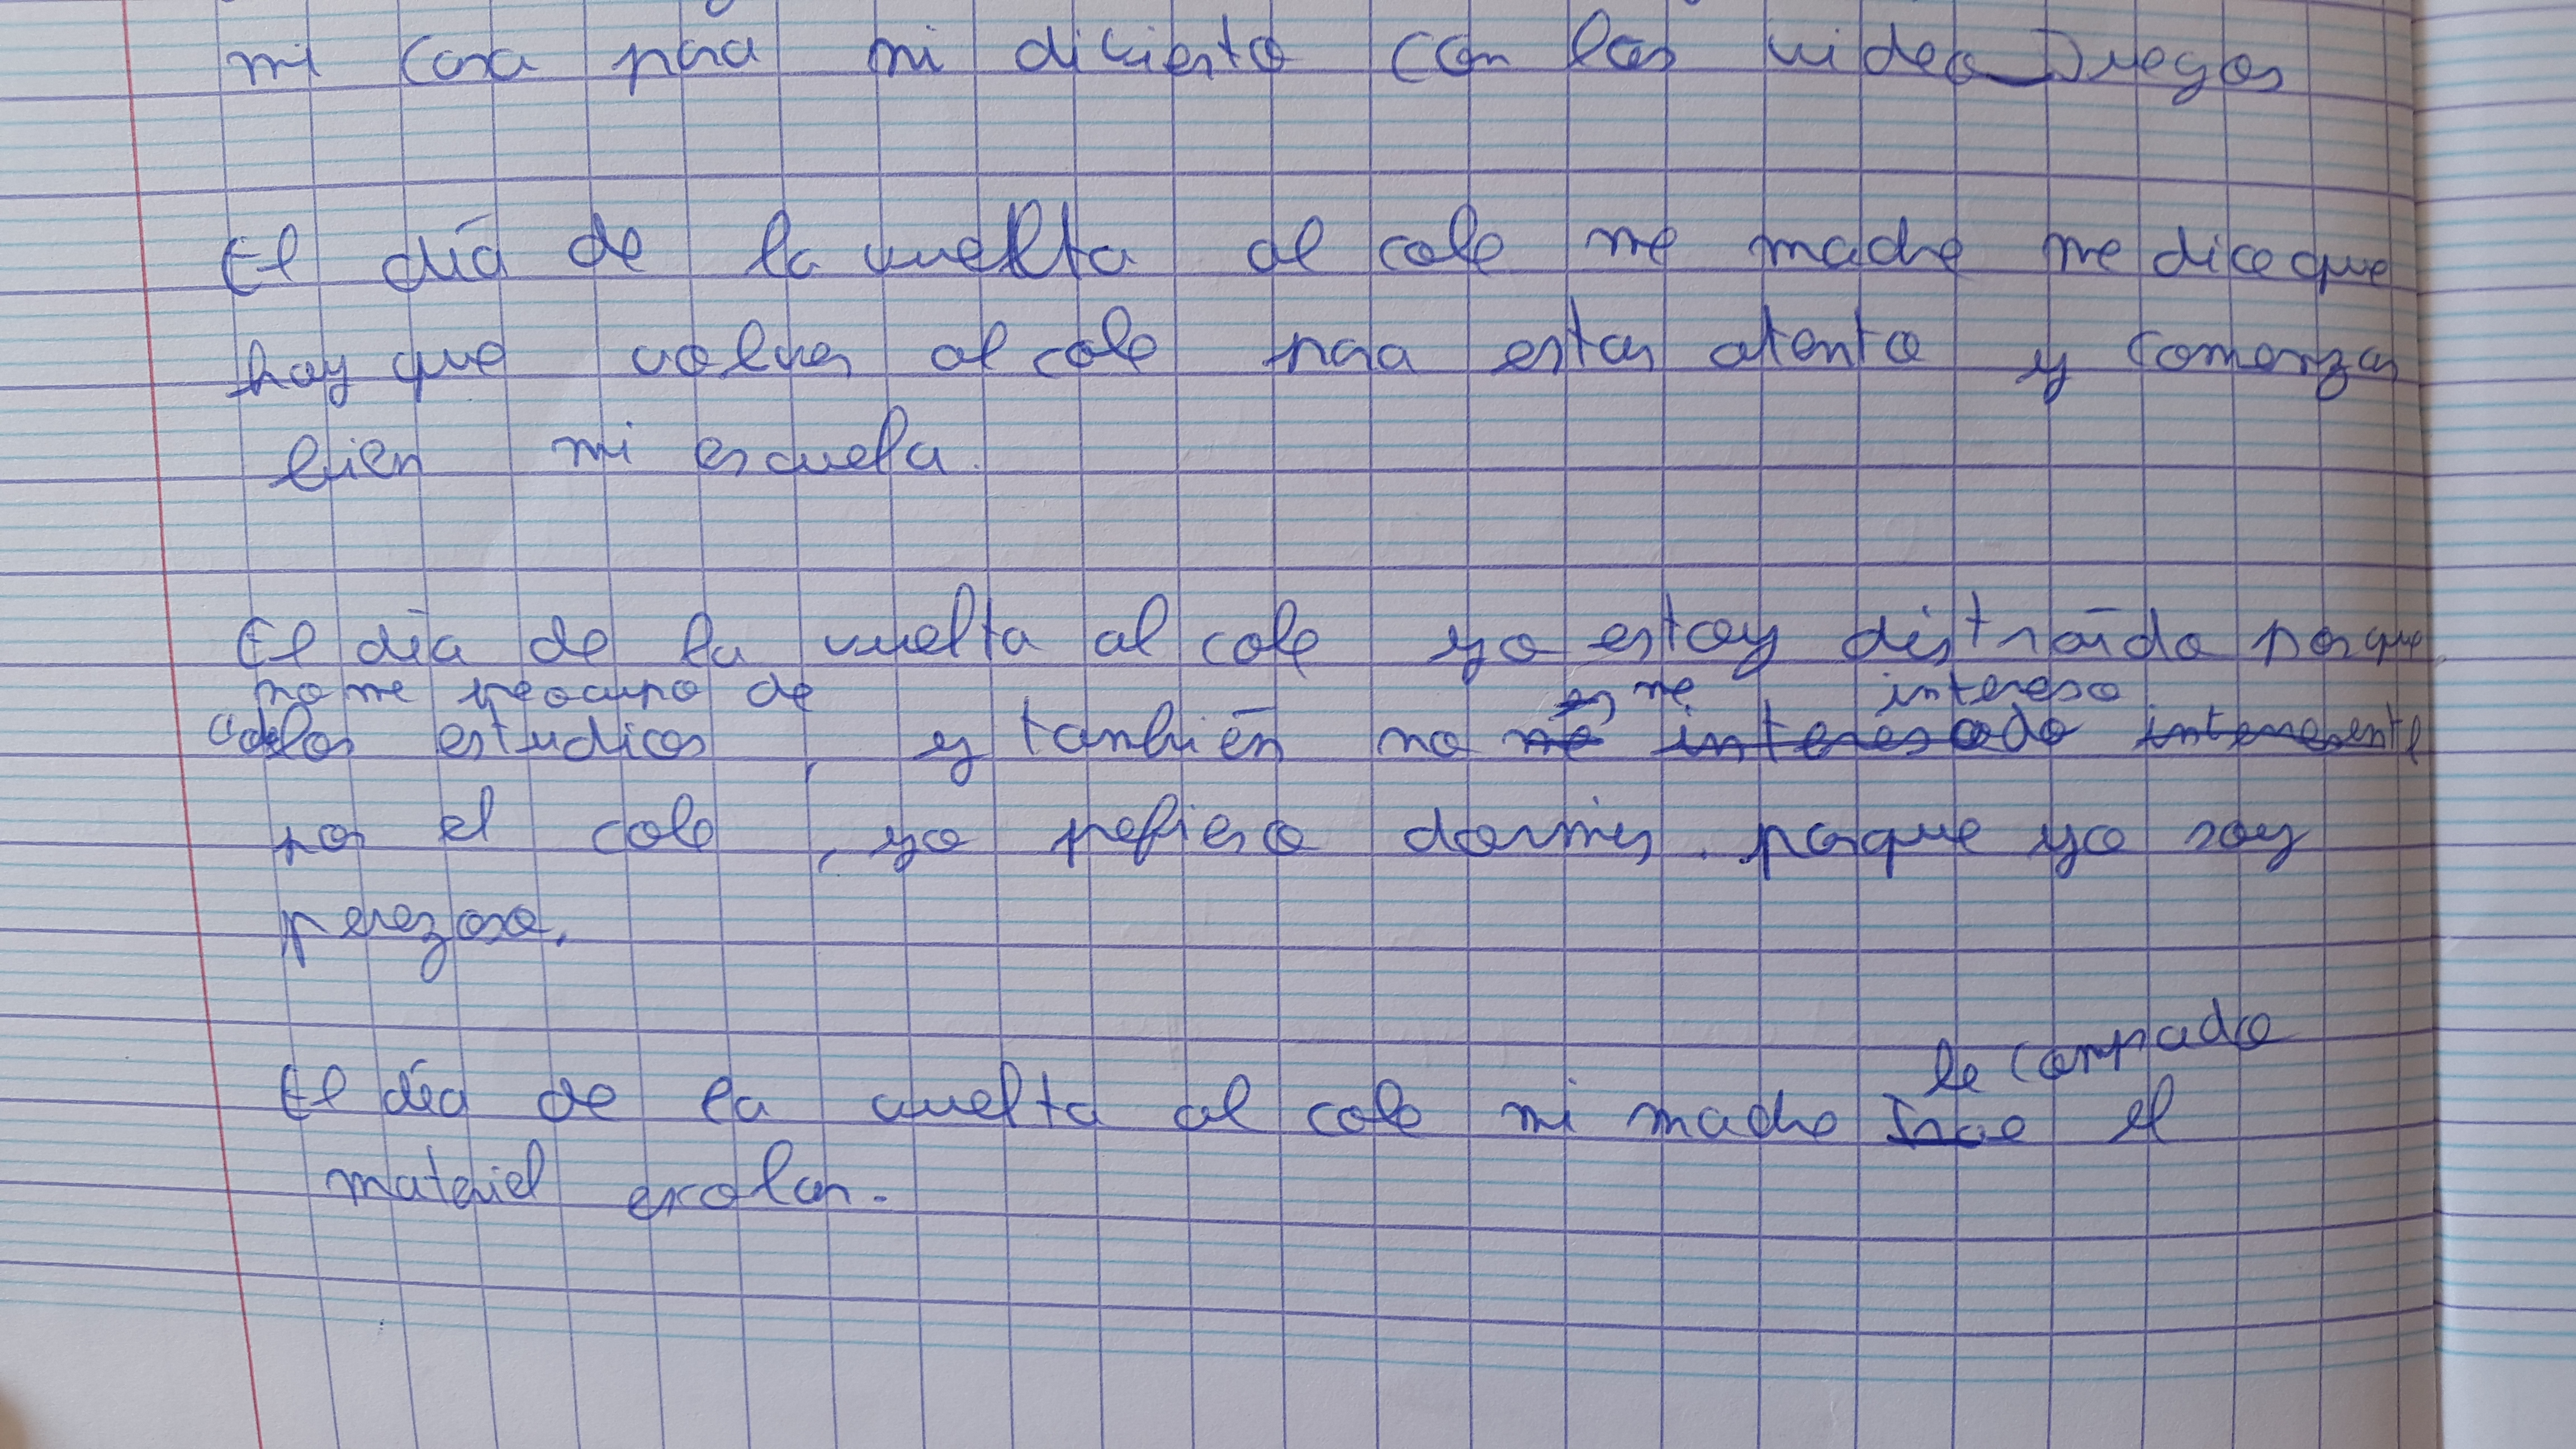 mi casa para mi diviento con los video Juegos
El día de la vuelta al cole me madre me dice que
hay que volver al cole para estar atento y comenzar
bien mi escuela.
El día de la vuelta al cole yo estoy distraído porque
no me preocupo de es me intereso
los estudios, y también no me interesado
por el cole, yo prefiero dormir. porque yo soy
perezoso.
le comprado
El día de la vuelta al cole mi madre el
material escolar.